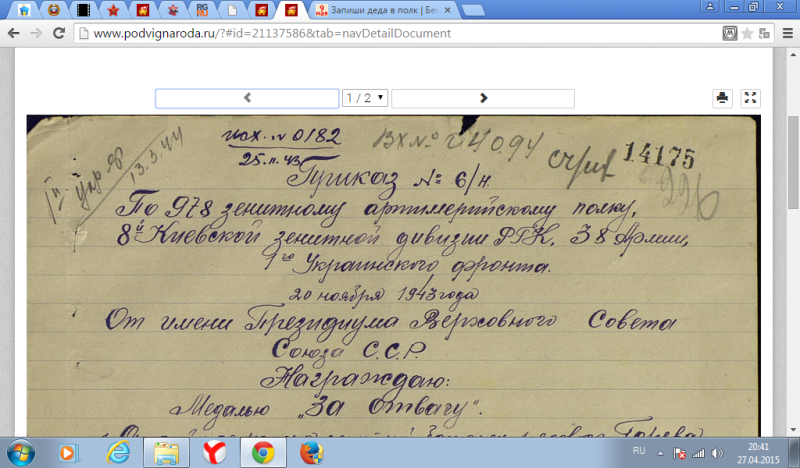 Запиши деда в полк | Бес
www.podvignaroda.ru/?#id=21137586&tab=navDetailDocument
1 / 2
исх. № 0182
25.11.43
Вх №
14175
13.3.44
Приказ № 6/н.
По 978 зенитному артиллерийскому полку,
8й Киевской зенитной дивизии РГК, 38 Армии,
1го Украинского фронта.
20 ноября 1943 года
От имени Президиума Верховного Совета
Союза С.С.Р.
Награждаю:
Медалью „За отвагу".
RU
20:41
27.04.2015